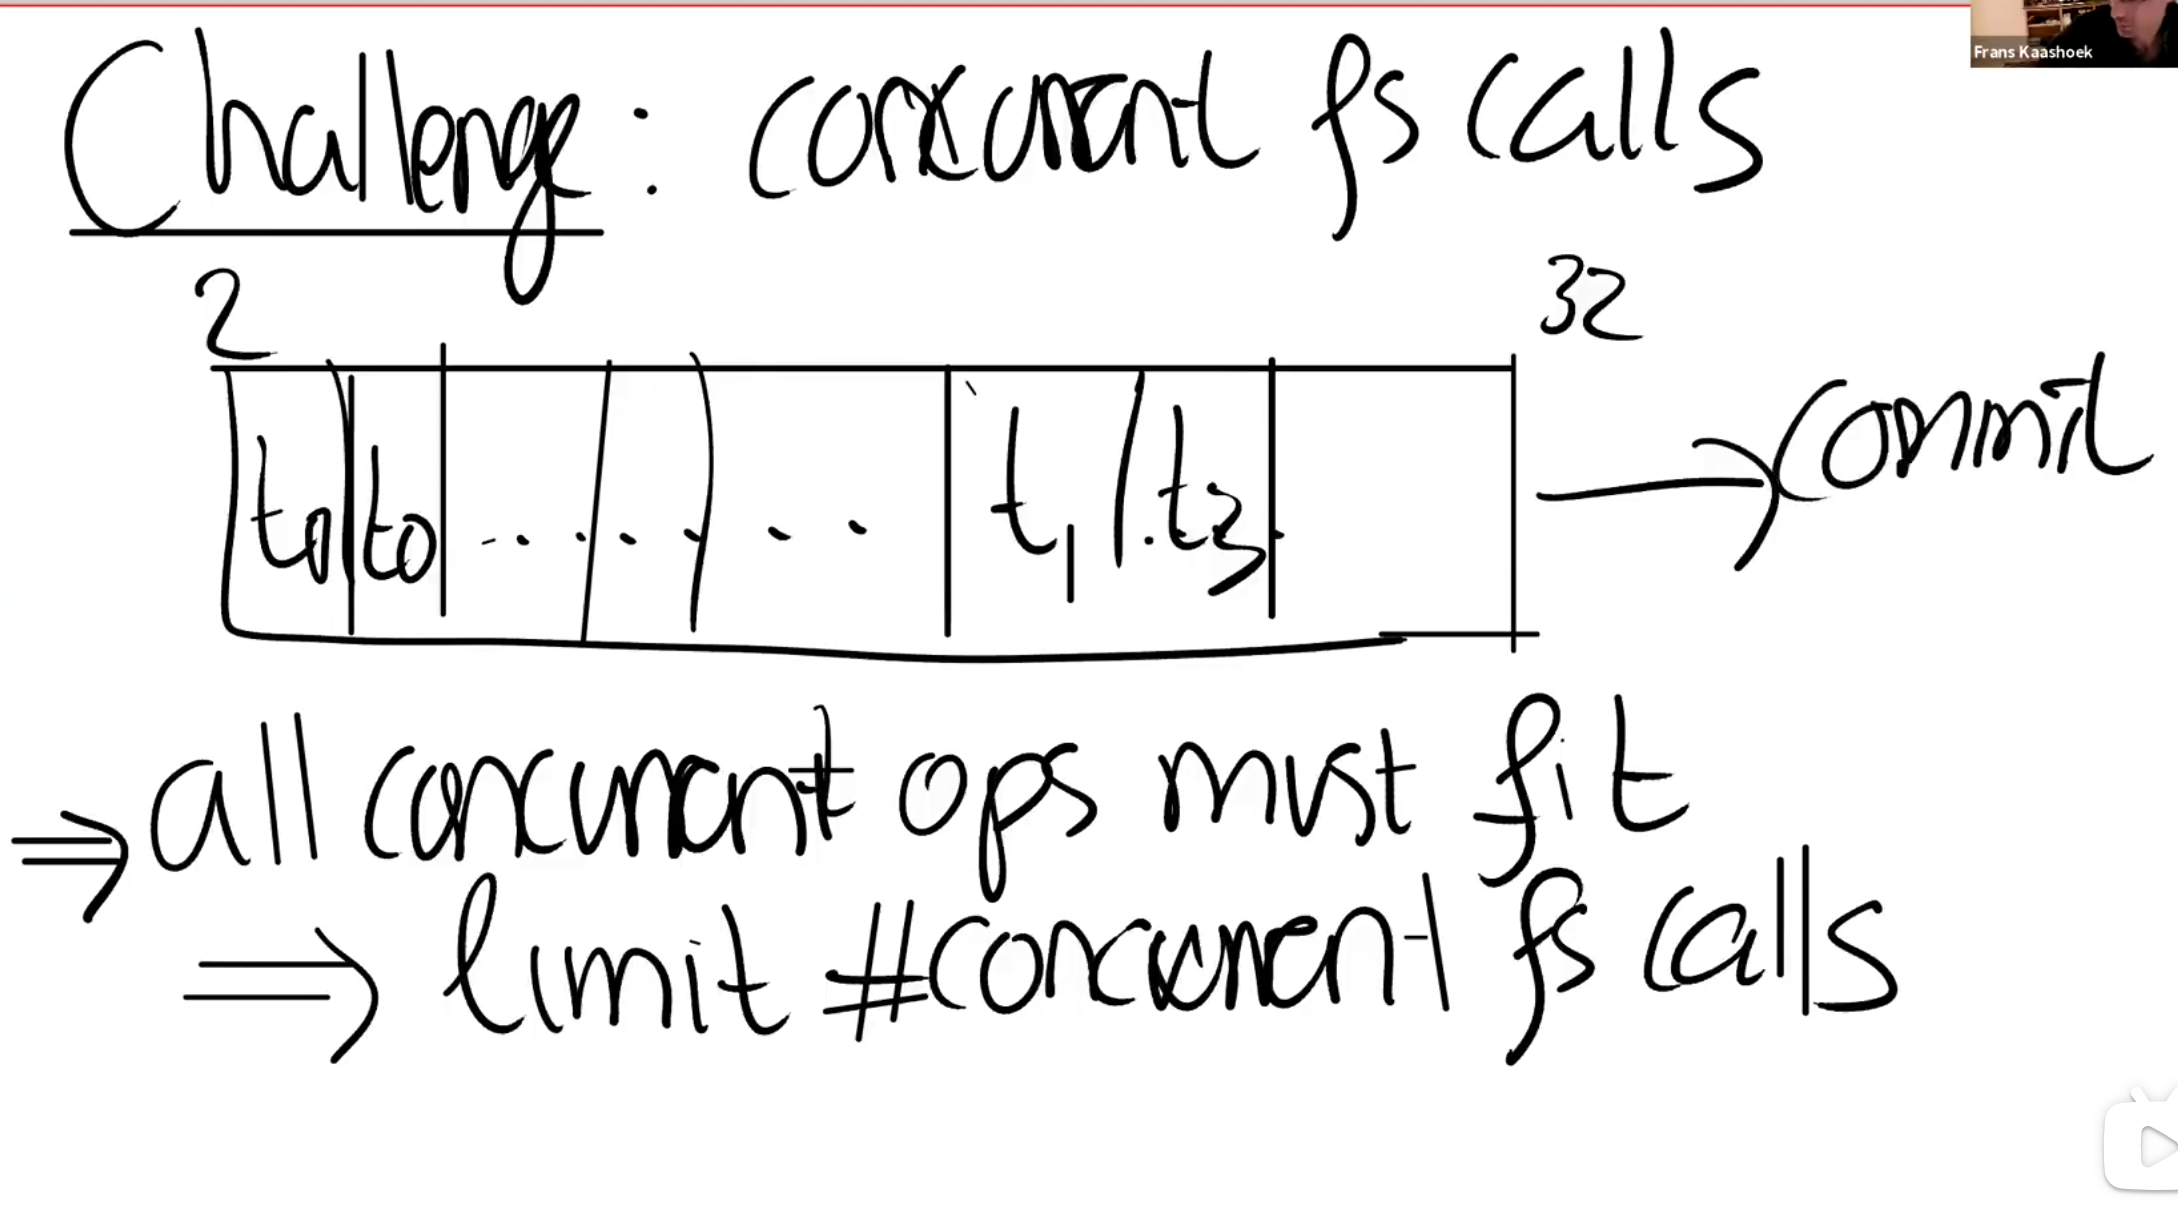 Frans Kaashoek
Challenge: concurrent fs calls
2 32
t0 t0 ..... . . t1 . t3 . commit
⇒ all concurrent ops must fit
⇒ limit #concurrent fs calls